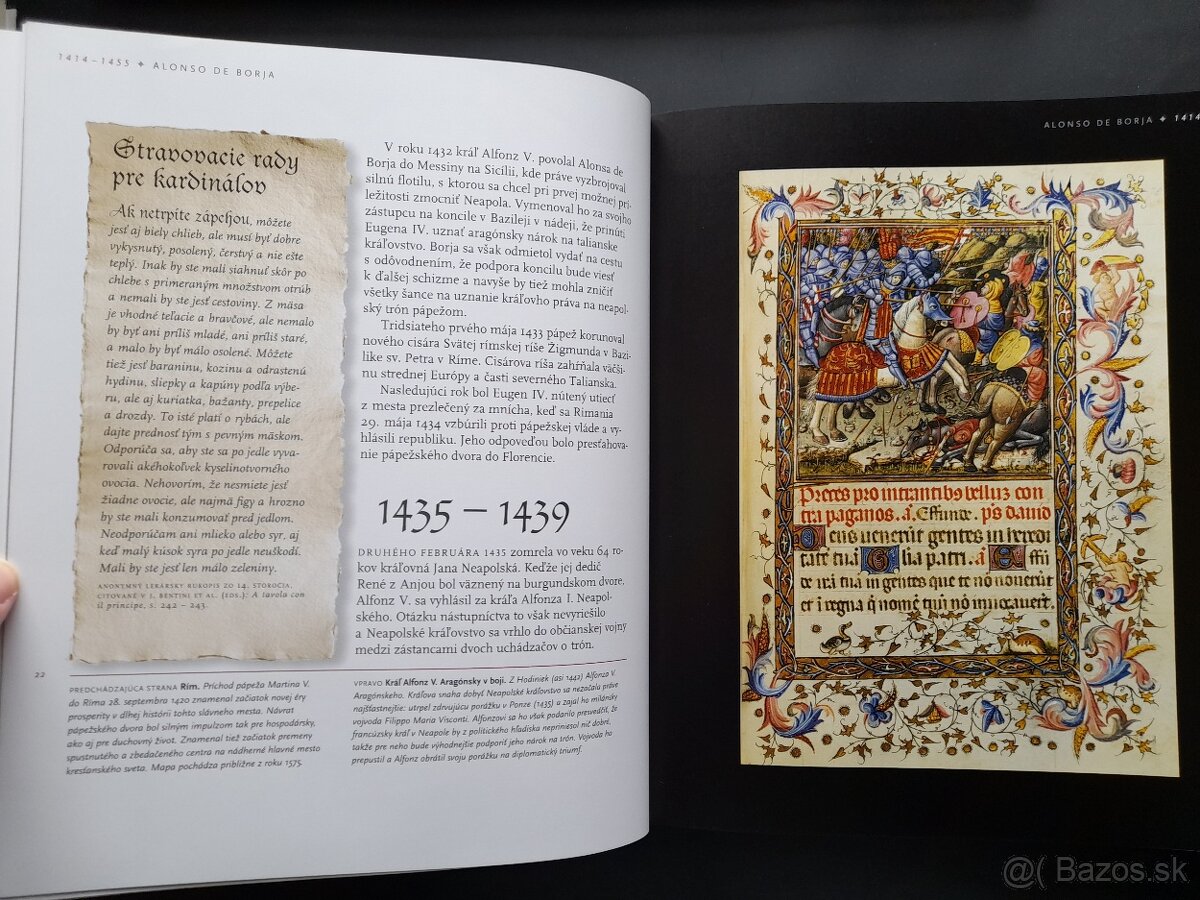 1414–1455 ✦ ALONSO DE BORJA
Stravovacie rady
pre kardinálov
Ak netrpíte zápchou, môžete
jesť aj biely chlieb, ale musí byť dobre
vykysnutý, posolený, čerstvý a nie ešte
teplý. Inak by ste mali siahnuť skôr po
chlebe s primeraným množstvom otrúb
a nemali by ste jesť cestoviny. Z mäsa
je vhodné teľacie a bravčové, ale nemalo
by byť ani príliš mladé, ani príliš staré,
a malo by byť málo osolené. Môžete
tiež jesť baraninu, kozinu a odrastenú
hydinu, sliepky a kapúny podľa výbe-
ru, ale aj kuriatka, bažanty, prepelice
a drozdy. To isté platí o rybách, ale
dajte prednosť tým s pevným mäskom.
Odporúča sa, aby ste sa po jedle vyva-
rovali akéhokoľvek kyselinotvorného
ovocia. Nehovorím, že nesmiete jesť
žiadne ovocie, ale najmä figy a hrozno
by ste mali konzumovať pred jedlom.
Neodporúčam ani mlieko alebo syr, aj
keď malý kúsok syra po jedle neuškodí.
Mali by ste jesť len málo zeleniny.
ANONYMNÝ LEKÁRSKY RUKOPIS ZO 14. STOROČIA,
CITOVANÉ V J. BENTINI ET AL. (EDS.): A tavola con
il principe, s. 242 – 243.
V roku 1432 kráľ Alfonz V. povolal Alonsa de
Borja do Messiny na Sicílii, kde práve vyzbrojoval
silnú flotilu, s ktorou sa chcel pri prvej možnej prí-
ležitosti zmocniť Neapola. Vymenoval ho za svojho
zástupcu na koncile v Bazileji v nádeji, že prinúti
Eugena IV. uznať aragónsky nárok na talianske
kráľovstvo. Borja sa však odmietol vydať na cestu
s odôvodnením, že podpora koncilu bude viesť
k ďalšej schizme a navyše by tiež mohla zničiť
všetky šance na uznanie kráľovho práva na neapol-
ský trón pápežom.
Tridsiateho prvého mája 1433 pápež korunoval
nového cisára Svätej rímskej ríše Žigmunda v Bazi-
like sv. Petra v Ríme. Cisárova ríša zahŕňala väčši-
nu strednej Európy a časti severného Talianska.
Nasledujúci rok bol Eugen IV. nútený utiecť
z mesta prezlečený za mnícha, keď sa Rimania
29. mája 1434 vzbúrili proti pápežskej vláde a vy-
hlásili republiku. Jeho odpoveďou bolo presťahova-
nie pápežského dvora do Florencie.
1435 – 1439
DRUHÉHO FEBRUÁRA 1435 zomrela vo veku 64 ro-
kov kráľovná Jana Neapolská. Keďže jej dedič
René z Anjou bol väznený na burgundskom dvore,
Alfonz V. sa vyhlásil za kráľa Alfonza I. Neapol-
ského. Otázku nástupníctva to však nevyriešilo
a Neapolské kráľovstvo sa vrhlo do občianskej vojny
medzi zástancami dvoch uchádzačov o trón.
22
PREDCHÁDZAJÚCA STRANA Rím. Príchod pápeža Martina V.
do Ríma 28. septembra 1420 znamenal začiatok novej éry
prosperity v dlhej histórii tohto slávneho mesta. Návrat
pápežského dvora bol silným impulzom tak pre hospodársky,
ako aj pre duchovný život. Znamenal tiež začiatok premeny
spustnutého a zbedačeného centra na nádherné hlavné mesto
kresťanského sveta. Mapa pochádza približne z roku 1575.
VPRAVO Kráľ Alfonz V. Aragónsky v boji. Z Hodiniek (asi 1442) Alfonza V.
Aragónskeho. Kráľova snaha dobyť Neapolské kráľovstvo sa nezačala práve
najšťastnejšie: utrpel zdrvujúcu porážku v Ponze (1435) a zajal ho milánsky
vojvoda Filippo Maria Visconti. Alfonzovi sa ho však podarilo presvedčiť, že
francúzsky kráľ v Neapole by z politického hľadiska nepriniesol nič dobré,
takže pre neho bude výhodnejšie podporiť jeho nárok na trón. Vojvoda ho
prepustil a Alfonz obrátil svoju porážku na diplomatický triumf.
ALONSO DE BORJA ✦ 1414
Preces pro intrantibꝰ belluz con
tra paganos. a͞. Effunde. p̄s david
Deus venerūt gentes in heredi
tatē tuā Glia patri. a͞ Effū
de irā tuā in gentes que te nō noverūt
et ī regna q̄ nomē tuū nō invocaverūt.
@( Bazos.sk